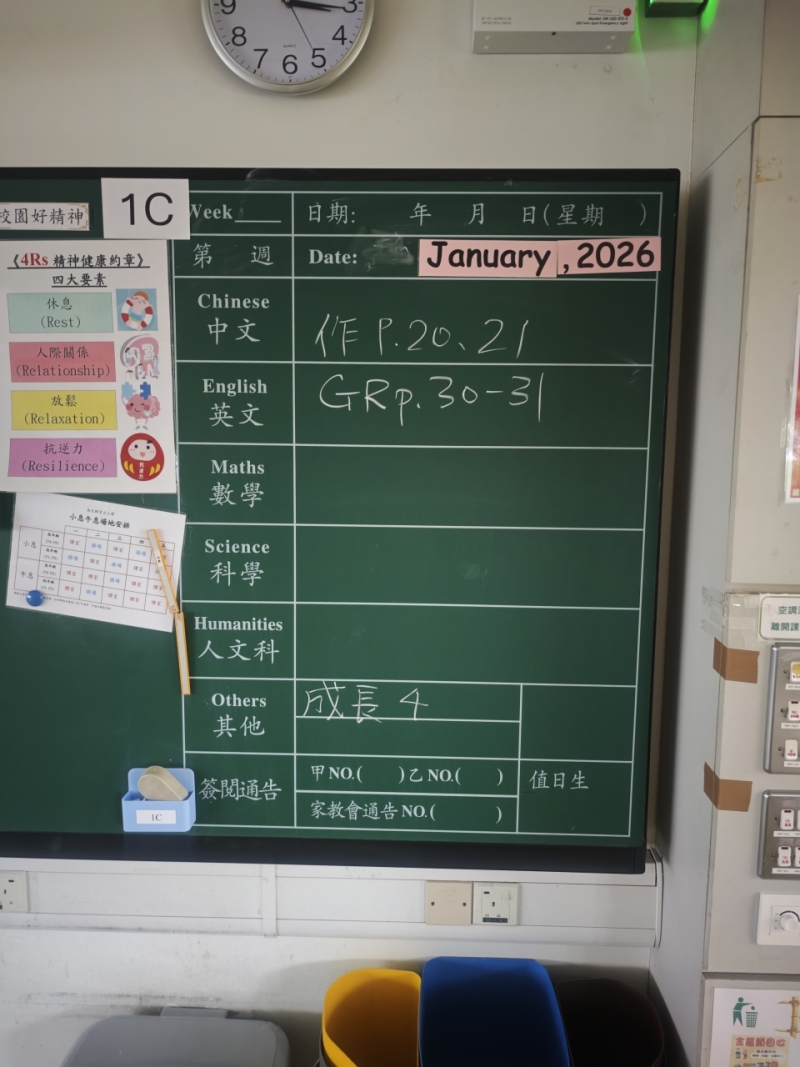 9
3
8
4
7
6
5
QUARTZ
校園好精神
1C
Week
日期: 年 月 日(星期 )
第 週
Date:
January, 2026
《4Rs 精神健康約章》
四大要素
休息
(Rest)
人際關係
(Relationship)
放鬆
(Relaxation)
抗逆力
(Resilience)
Chinese
中文
作 P.20、21
English
英文
GR p.30-31
Maths
數學
Science
科學
Humanities
人文科
Others
其他
成長 4
簽閱通告
甲 NO.( ) 乙 NO.( )
家教會通告 NO.( )
值日生
小息午息場地安排
小息
午息
1C
空調
離開課